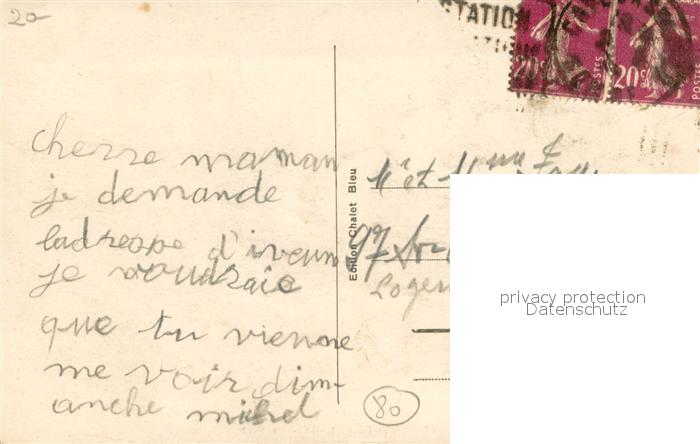 20-
STATION
20c
POSTES
20c
POSTES
cherre maman
je demande
ladresse d'iveun
je voudraie
que tu vienne
me voir dim-
anche michel
Edition Chalet Bleu
Mr et Mme
97
Logem
80
privacy protection
Datenschutz